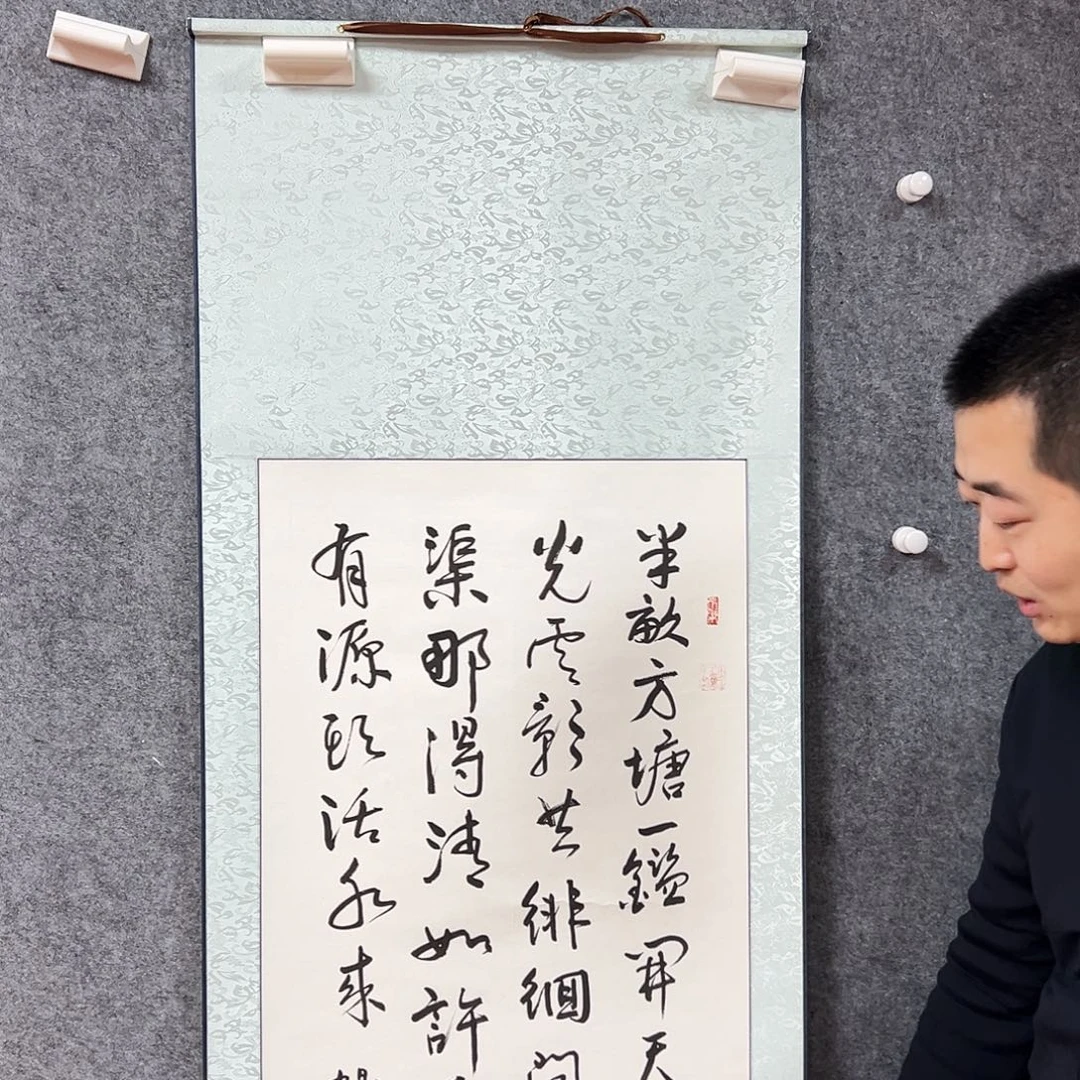 半畝方塘一鑑開天
光雲影共徘徊問
渠那得清如許
有源頭活水來